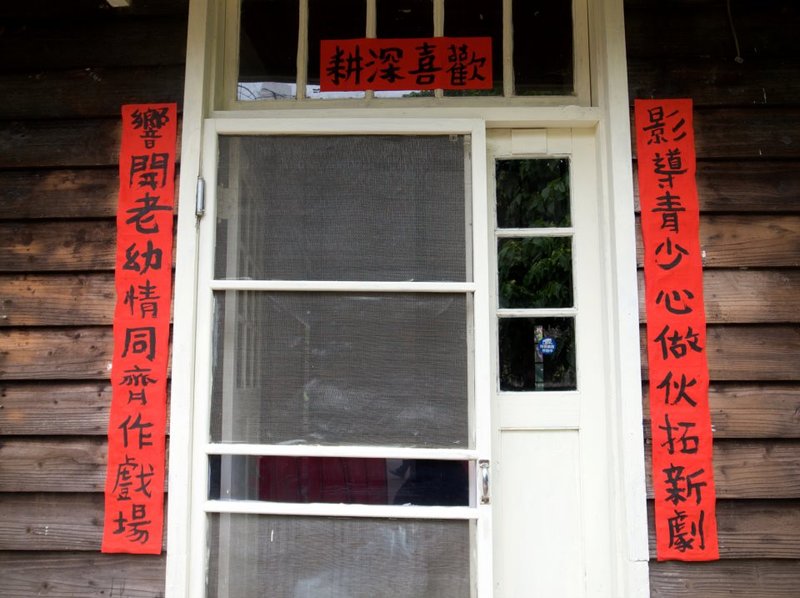 耕深喜歡
影導青少心做伙拓新劇
響開老幼情同齊作戲場